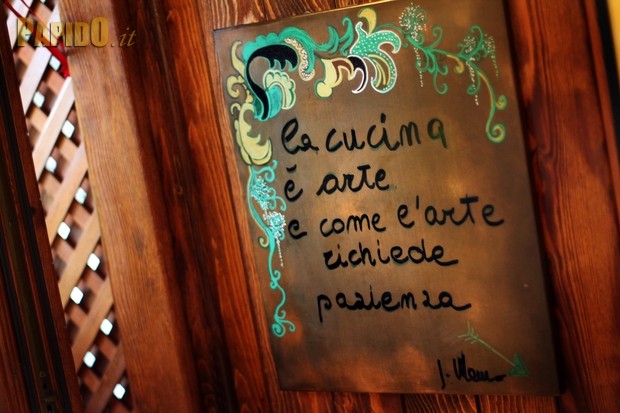 PAPIDO.it
la cucina
è arte
e come l'arte
richiede
pazienza